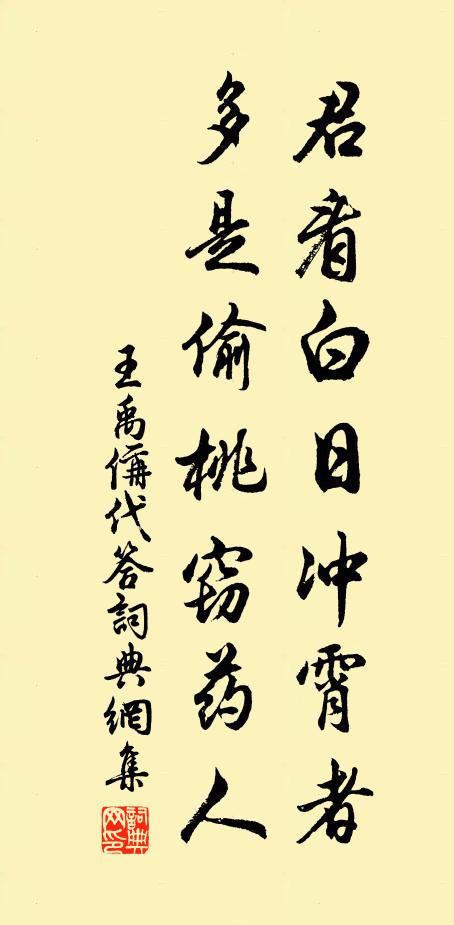 君看白日冲霄者
多是偷桃窃药人
王禹偁代答詞典網集
詞典網印